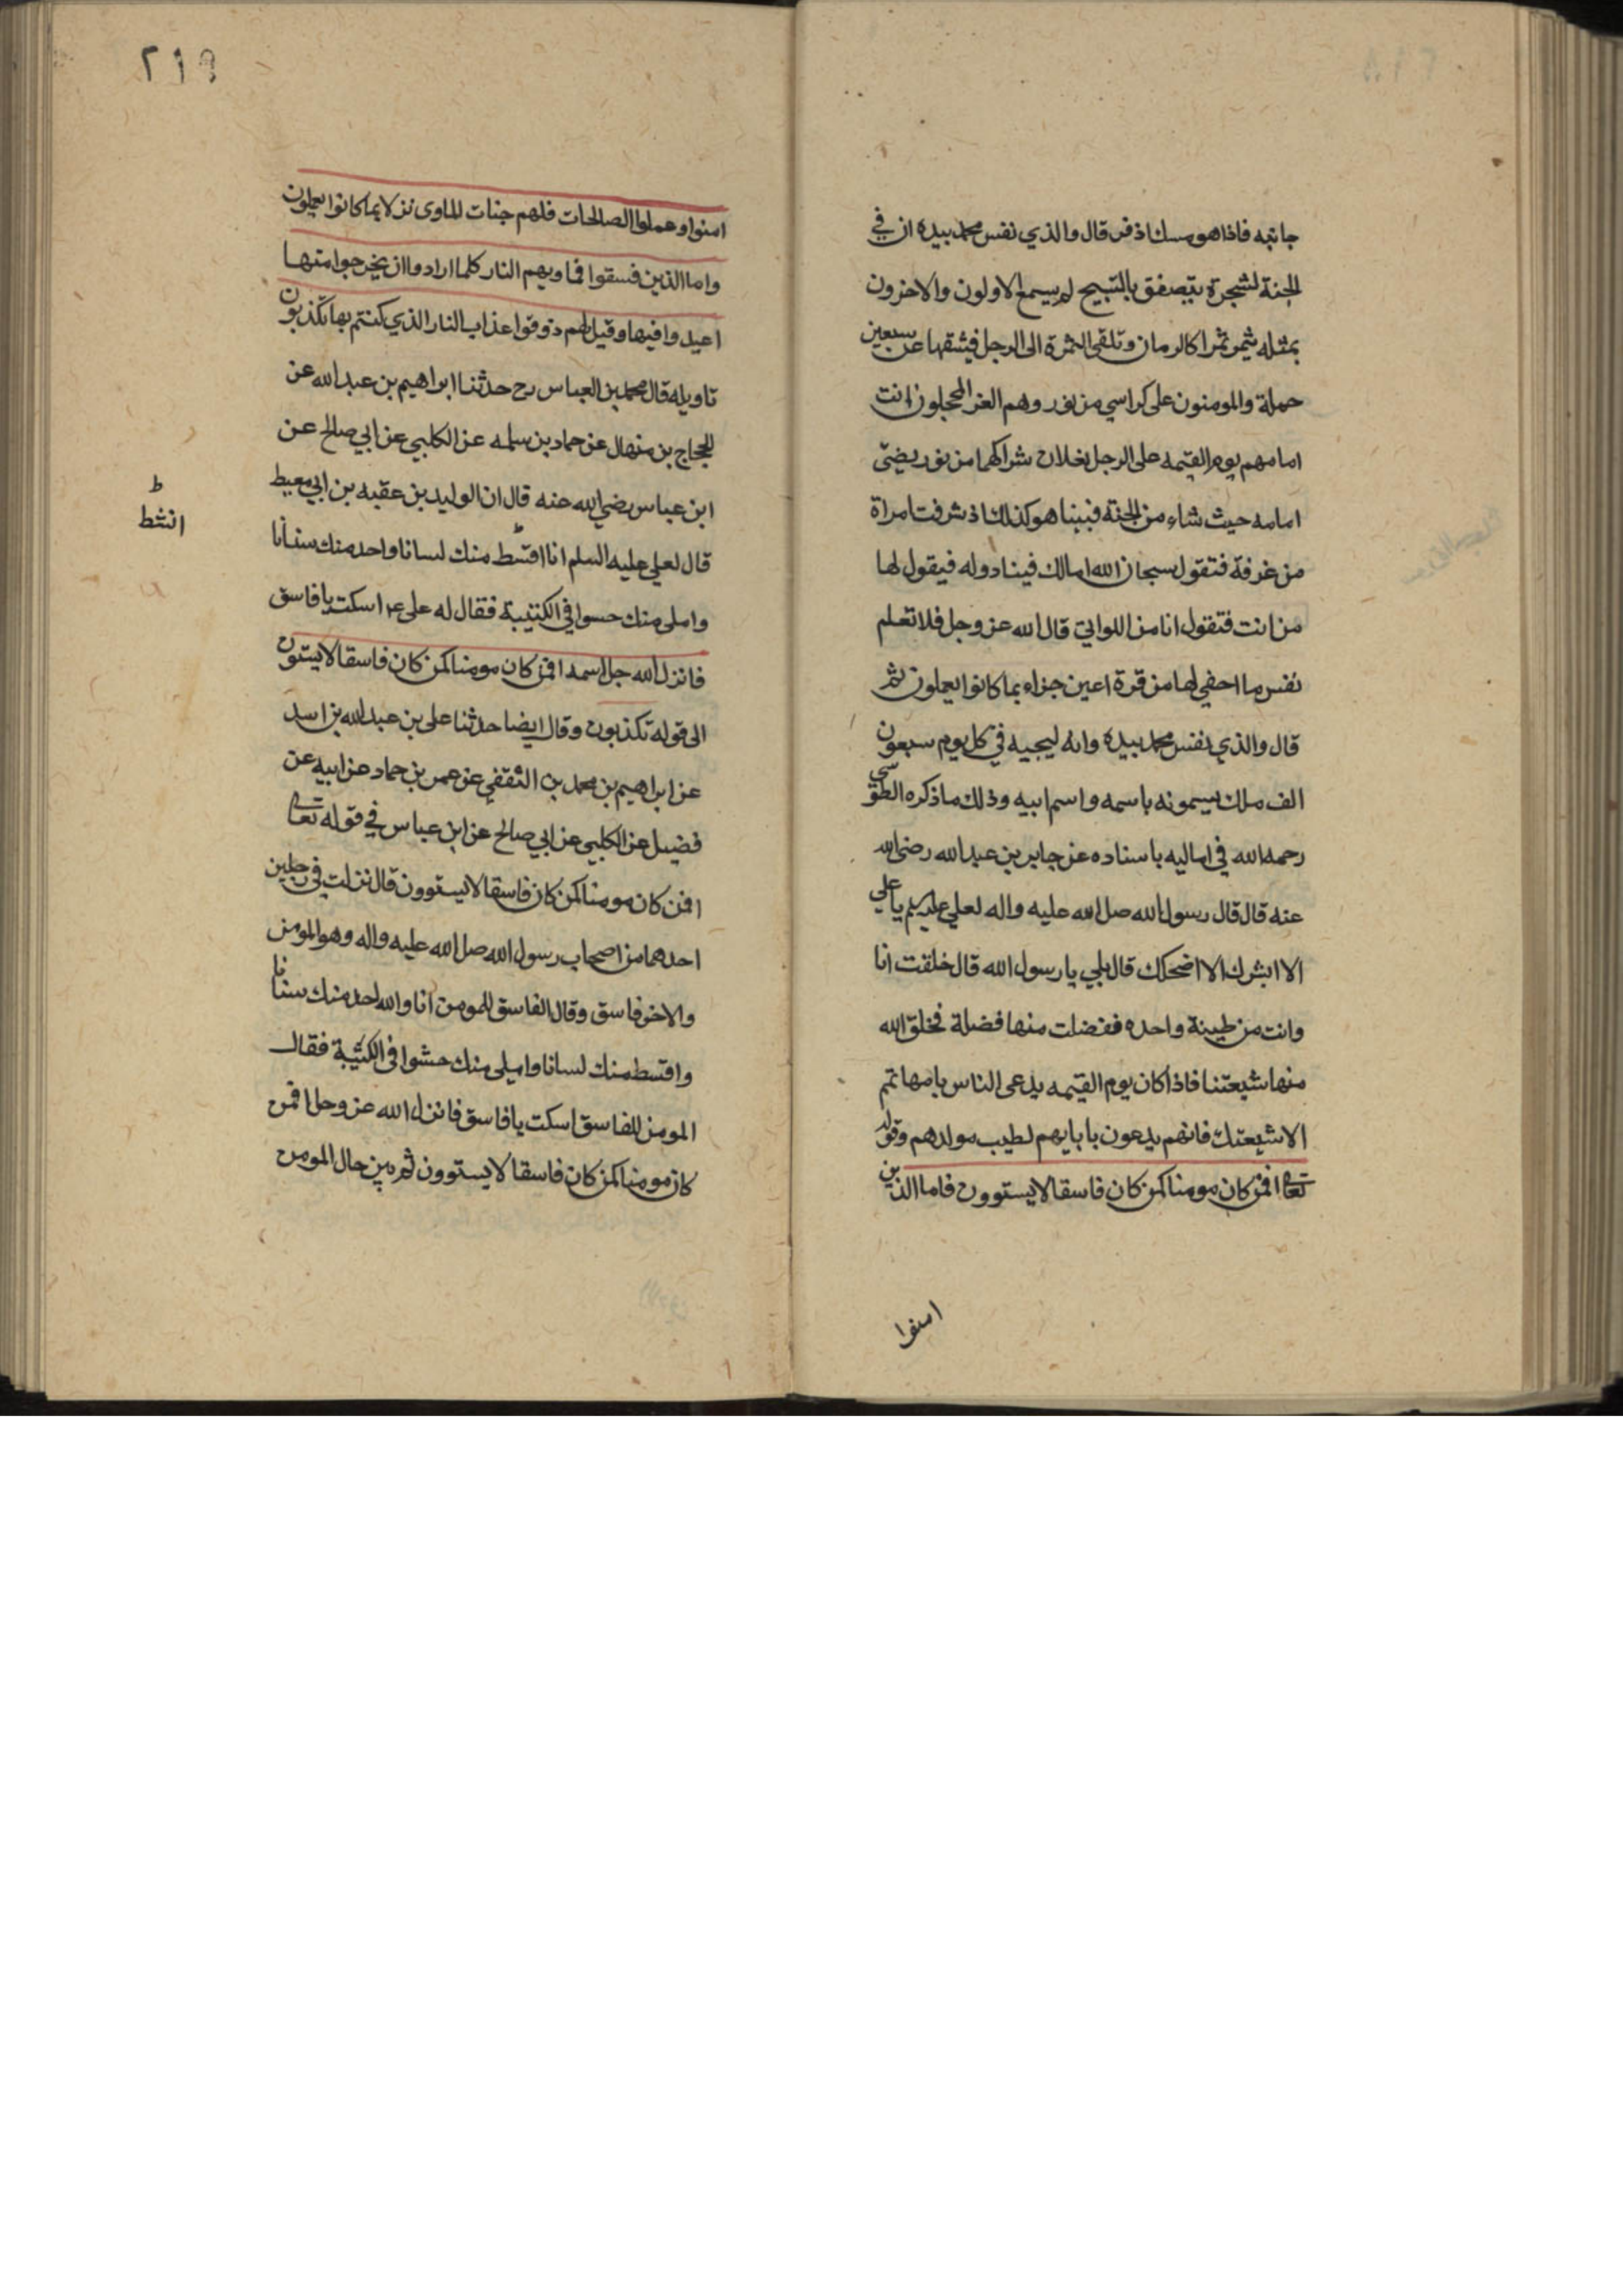 جانبه فاذا هو مسك اذفر قال والذي نفس محمد بيده ان في
الجنة لشجرة يتصفق بالتسبيح لم يسمع الاولون والاخرون
بمثله يثمر ثمرا كالرمان وتلقى الثمرة الى الرجل فيشقها عن سبعين
حملة والمومنون على كراسي من نور وهم الغر المحجلون انت
امامهم يوم القيمه على الرجل نعلان شراكهما من نور يضئ
امامه حيث شاء من الجنة فبينا هو كذلك اذ شرفت امراة
من غرفة فتقول سبحان الله امالك فينا دوله فيقول لها
من انت فتقول انا من اللواتي قال الله عز وجل فلا تعلم
نفس ما اخفي لها من قرة اعين جزاء بما كانوا يعملون ثم
قال والذي نفس محمد بيده وانه ليجيه في كل يوم سبعون
الف ملك يسمونه باسمه واسم ابيه وذلك ما ذكره الطوسي
رحمه الله في اماليه باسناده عن جابر بن عبد الله رضى الله
عنه قال قال رسول الله صلى الله عليه واله لعلي عليه السلم يا علي
الا ابشرك الا اضحكك قال بلي يا رسول الله قال خلقت انا
وانت من طينة واحده ففضلت منها فضلة فخلق الله
منها شيعتنا فاذا كان يوم القيمه يدعى الناس بامهاتهم
الا شيعتك فانهم يدعون بابايهم لطيب مولدهم وقوله
تعالى افمن كان مومنا كمن كان فاسقا لا يستوون فاما الذين
امنوا
٢١٩
امنوا وعملوا الصالحات فلهم جنات الماوى نزلا بما كانوا يعملون
واما الذين فسقوا فماويهم النار كلما ارادوا ان يخرجوا منها
اعيدوا فيها وقيل لهم ذوقوا عذاب النار الذي كنتم بها تكذبون
تاويله قال محمد بن العباس رح حدثنا ابراهيم بن عبد الله عن
الحجاج بن منهال عن حماد بن سلمه عن الكلبي عن ابي صالح عن
ابن عباس رضي الله عنه قال ان الوليد بن عقبه بن ابي معيط
قال لعلي عليه السلم انا اقسط منك لسانا واحد منك سنانا
ط
انشط
واملى منك حسوا في الكتيبة فقال له على ع اسكت يا فاسق
فانزل الله جل اسمه افمن كان مومنا كمن كان فاسقا لا يستون
الى قوله تكذبون وقال ايضا حدثنا على بن عبد الله بن اسد
عن ابراهيم بن محمد بن الثقفي عن عمر بن حماد عن ابيه عن
فضيل عن الكلبي عن ابي صالح عن ابن عباس في قوله تعالى
افمن كان مومنا كمن كان فاسقا لا يستوون قال نزلت في رجلين
احدهما من اصحاب رسول الله صلى الله عليه واله وهو المومن
والاخر فاسق وقال الفاسق للمومن انا والله احد منك سنانا
واقسط منك لسانا واملى منك حشوا فى الكتيبة فقال
المومن للفاسق اسكت يا فاسق فانزل الله عز وجل افمن
كان مومنا كمن كان فاسقا لا يستوون ثم بين حال المومن